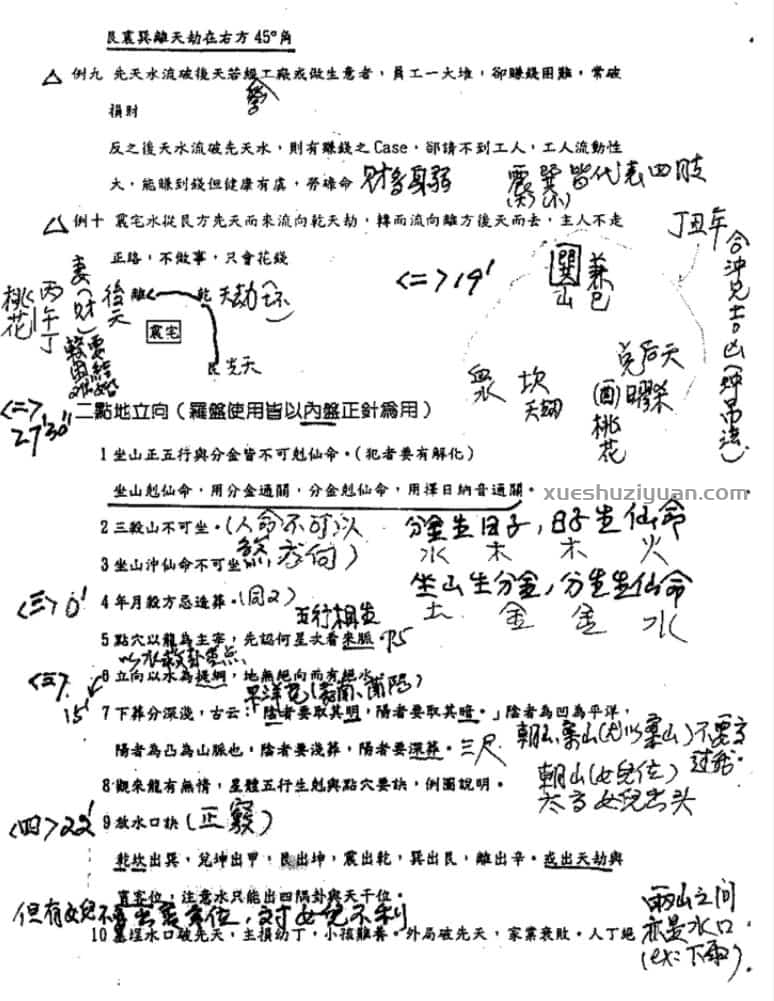 艮震巽離天劫在右方45°角
△ 例九 先天水流破後天若經工廠或做生意者,員工一大堆,卻賺錢困難,常破
營
損財
反之後天水流破先天水,則有賺錢之Case,卻請不到工人,工人流動性
大,能賺到錢但健康有虞,勞碌命 財多身弱
震巽皆代表四肢
△ 例十 震宅水從艮方先天而來流向乾天劫,轉而流向離方後天而去,主人不走
正路,不做事,只會花錢
<二>19'
巽山
兼巳
丁丑年
妻(財)
後天
離
乾 天劫
震宅
艮先天
丙午丁
桃花
坎
天劫
兌后天
(酉)曜殺
桃花
<二>
27'30"
二點地立向(羅盤使用皆以內盤正針為用)
1 坐山正五行與分金皆不可剋仙命。(犯者要有解化)
坐山剋仙命,用分金通關,分金剋仙命,用擇日納音通關。
xueshuziyuan.com
2 三殺山不可坐。(人命不可以
分金生日子,日子生仙命
水 木 木 火
3 坐山沖仙命不可坐
坐山生分金,分金生仙命
土 金 金 水
<三>0'
4 年月殺方忌造葬。(同2)
五行相生
5 點穴以龍為主宰,先認何星次看來脈
<三>
15'
6 立向以水為提綱,地無絕向而有絕水
7 下葬分深淺,古云:「陰者要取其明,陽者要取其暗。」陰者為凹為平洋,
陽者為凸為山脈也,陰者要淺葬,陽者要深葬。三尺
8 觀來龍有無情,星體五行生剋與點穴要訣,例圖說明。
朝山(女兒位)
太高女兒出头
<四>22'
9 放水口訣(正竅)
乾坎出巽,兌坤出甲,艮出坤,震出乾,巽出艮,離出辛。或出天劫與
賓客位,注意水只能出四隅卦與天干位。
10 墓埕水口破先天,主損幼丁,小孩難養。外局破先天,家業衰敗。人丁絕
兩山之間
亦是水口
(ex:下雨)